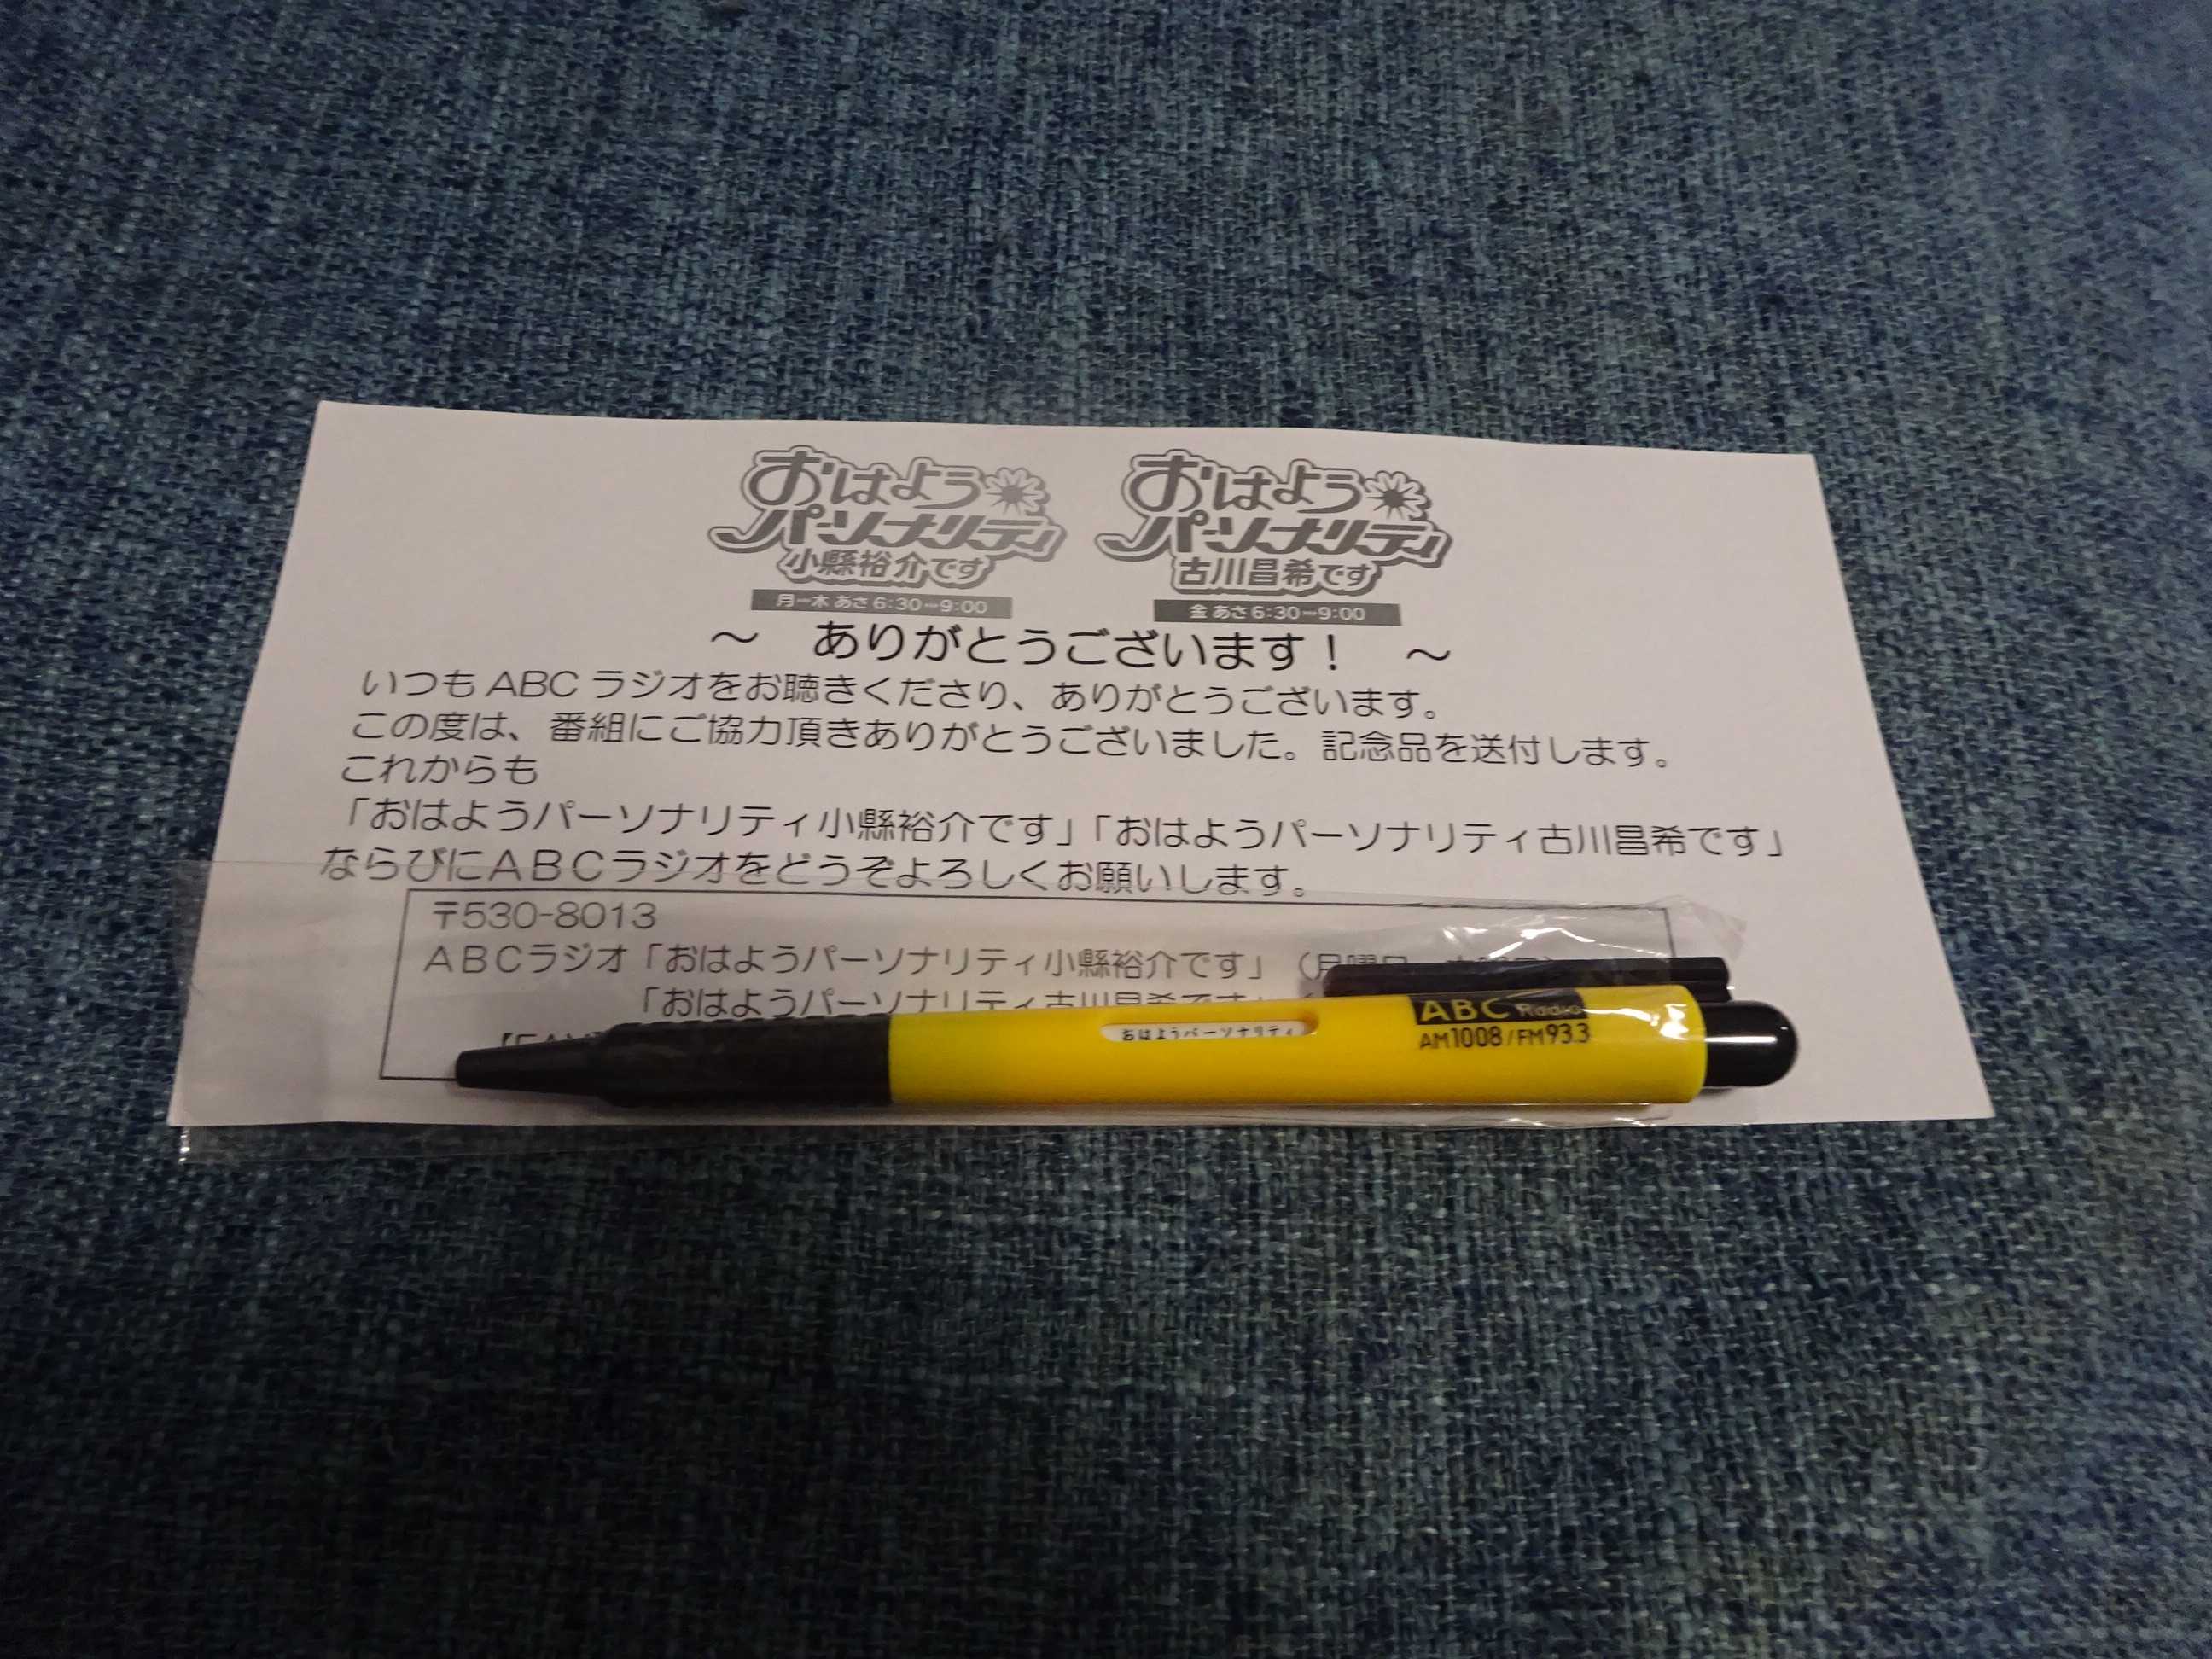 おはよう
パーソナリティ
小縣裕介です
月ー木 あさ 6:30ー9:00
おはよう
パーソナリティ
古川昌希です
金 あさ 6:30ー9:00
～ ありがとうございます！ ～
いつも ABC ラジオをお聴きくださり、ありがとうございます。
この度は、番組にご協力頂きありがとうございました。記念品を送付します。
これからも
「おはようパーソナリティ小縣裕介です」「おはようパーソナリティ古川昌希です」
ならびにＡＢＣラジオをどうぞよろしくお願いします。
〒530-8013
ＡＢＣラジオ「おはようパーソナリティ小縣裕介です」（月曜日
「おはようパーソナリティ古川昌希です」
おはようパーソナリティ
ABC Radio
AM1008/FM93.3